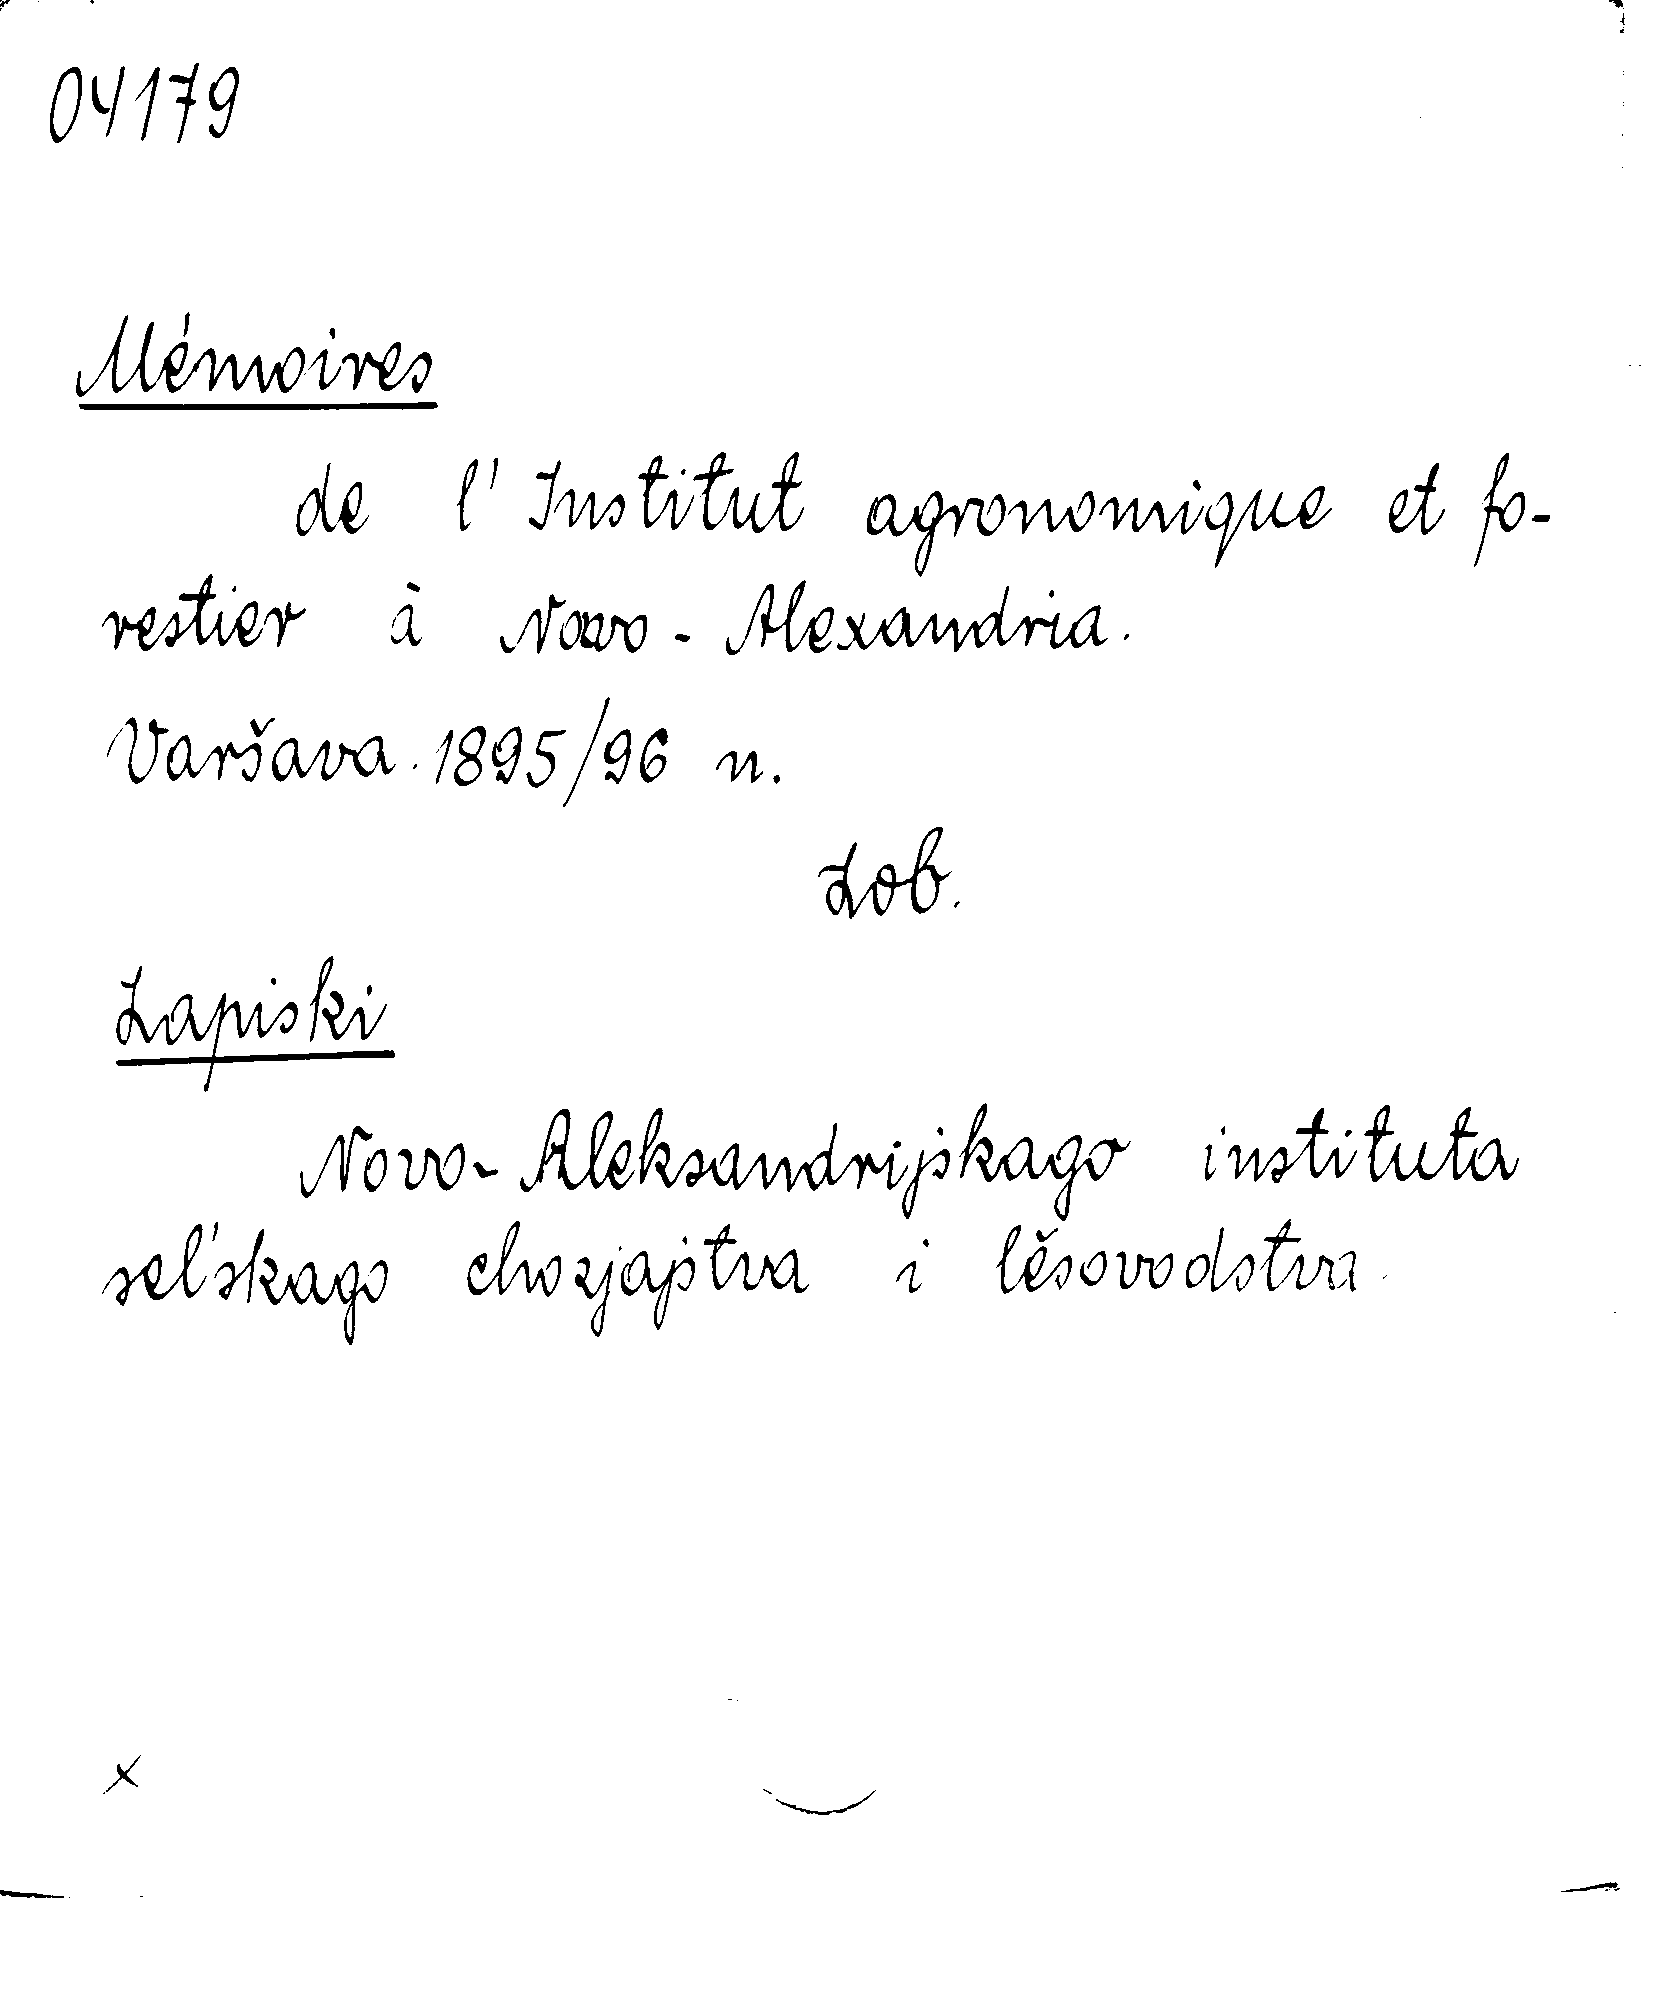 04179
Mémoires
de l'Institut agronomique et fo-
restier à Nowo-Alexandria.
Varšava. 1895/96 n.
Zob.
Zapiski
Novo-Aleksandrijskago instituta
sel'skago chozjajstva i lěsovodstva.
x